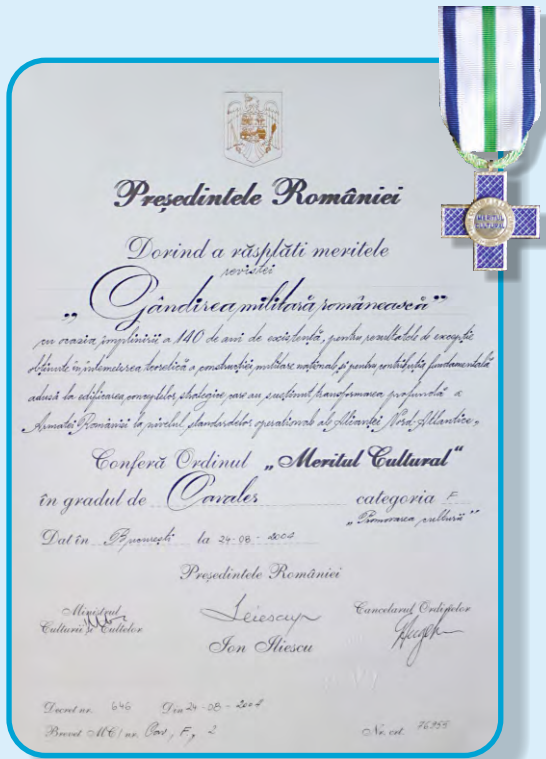 Președintele României
Dorind a răsplăti meritele
revistei
„Gândirea militară românească”
cu ocazia împlinirii a 140 de ani de existență, pentru rezultatele de excepție
obținute în întemeierea teoretică a construcției militare naționale și pentru contribuția fundamentală
adusă la edificarea conceptelor strategice care au susținut transformarea profundă a
Armatei României la nivelul standardelor operaționale ale Alianței Nord-Atlantice,
Conferă Ordinul „Meritul Cultural”
în gradul de Cavaler categoria F
„Promovarea culturii”
Dat în București la 24-08-2004
Președintele României
Ministrul
Culturii și Cultelor
Cancelarul Ordinelor
Ion Iliescu
Decret nr. 646 Din 24-08-2004
Brevet MC/nr. Cav, F, 2
Nr. crt. 76955
MERITUL
CULTURAL